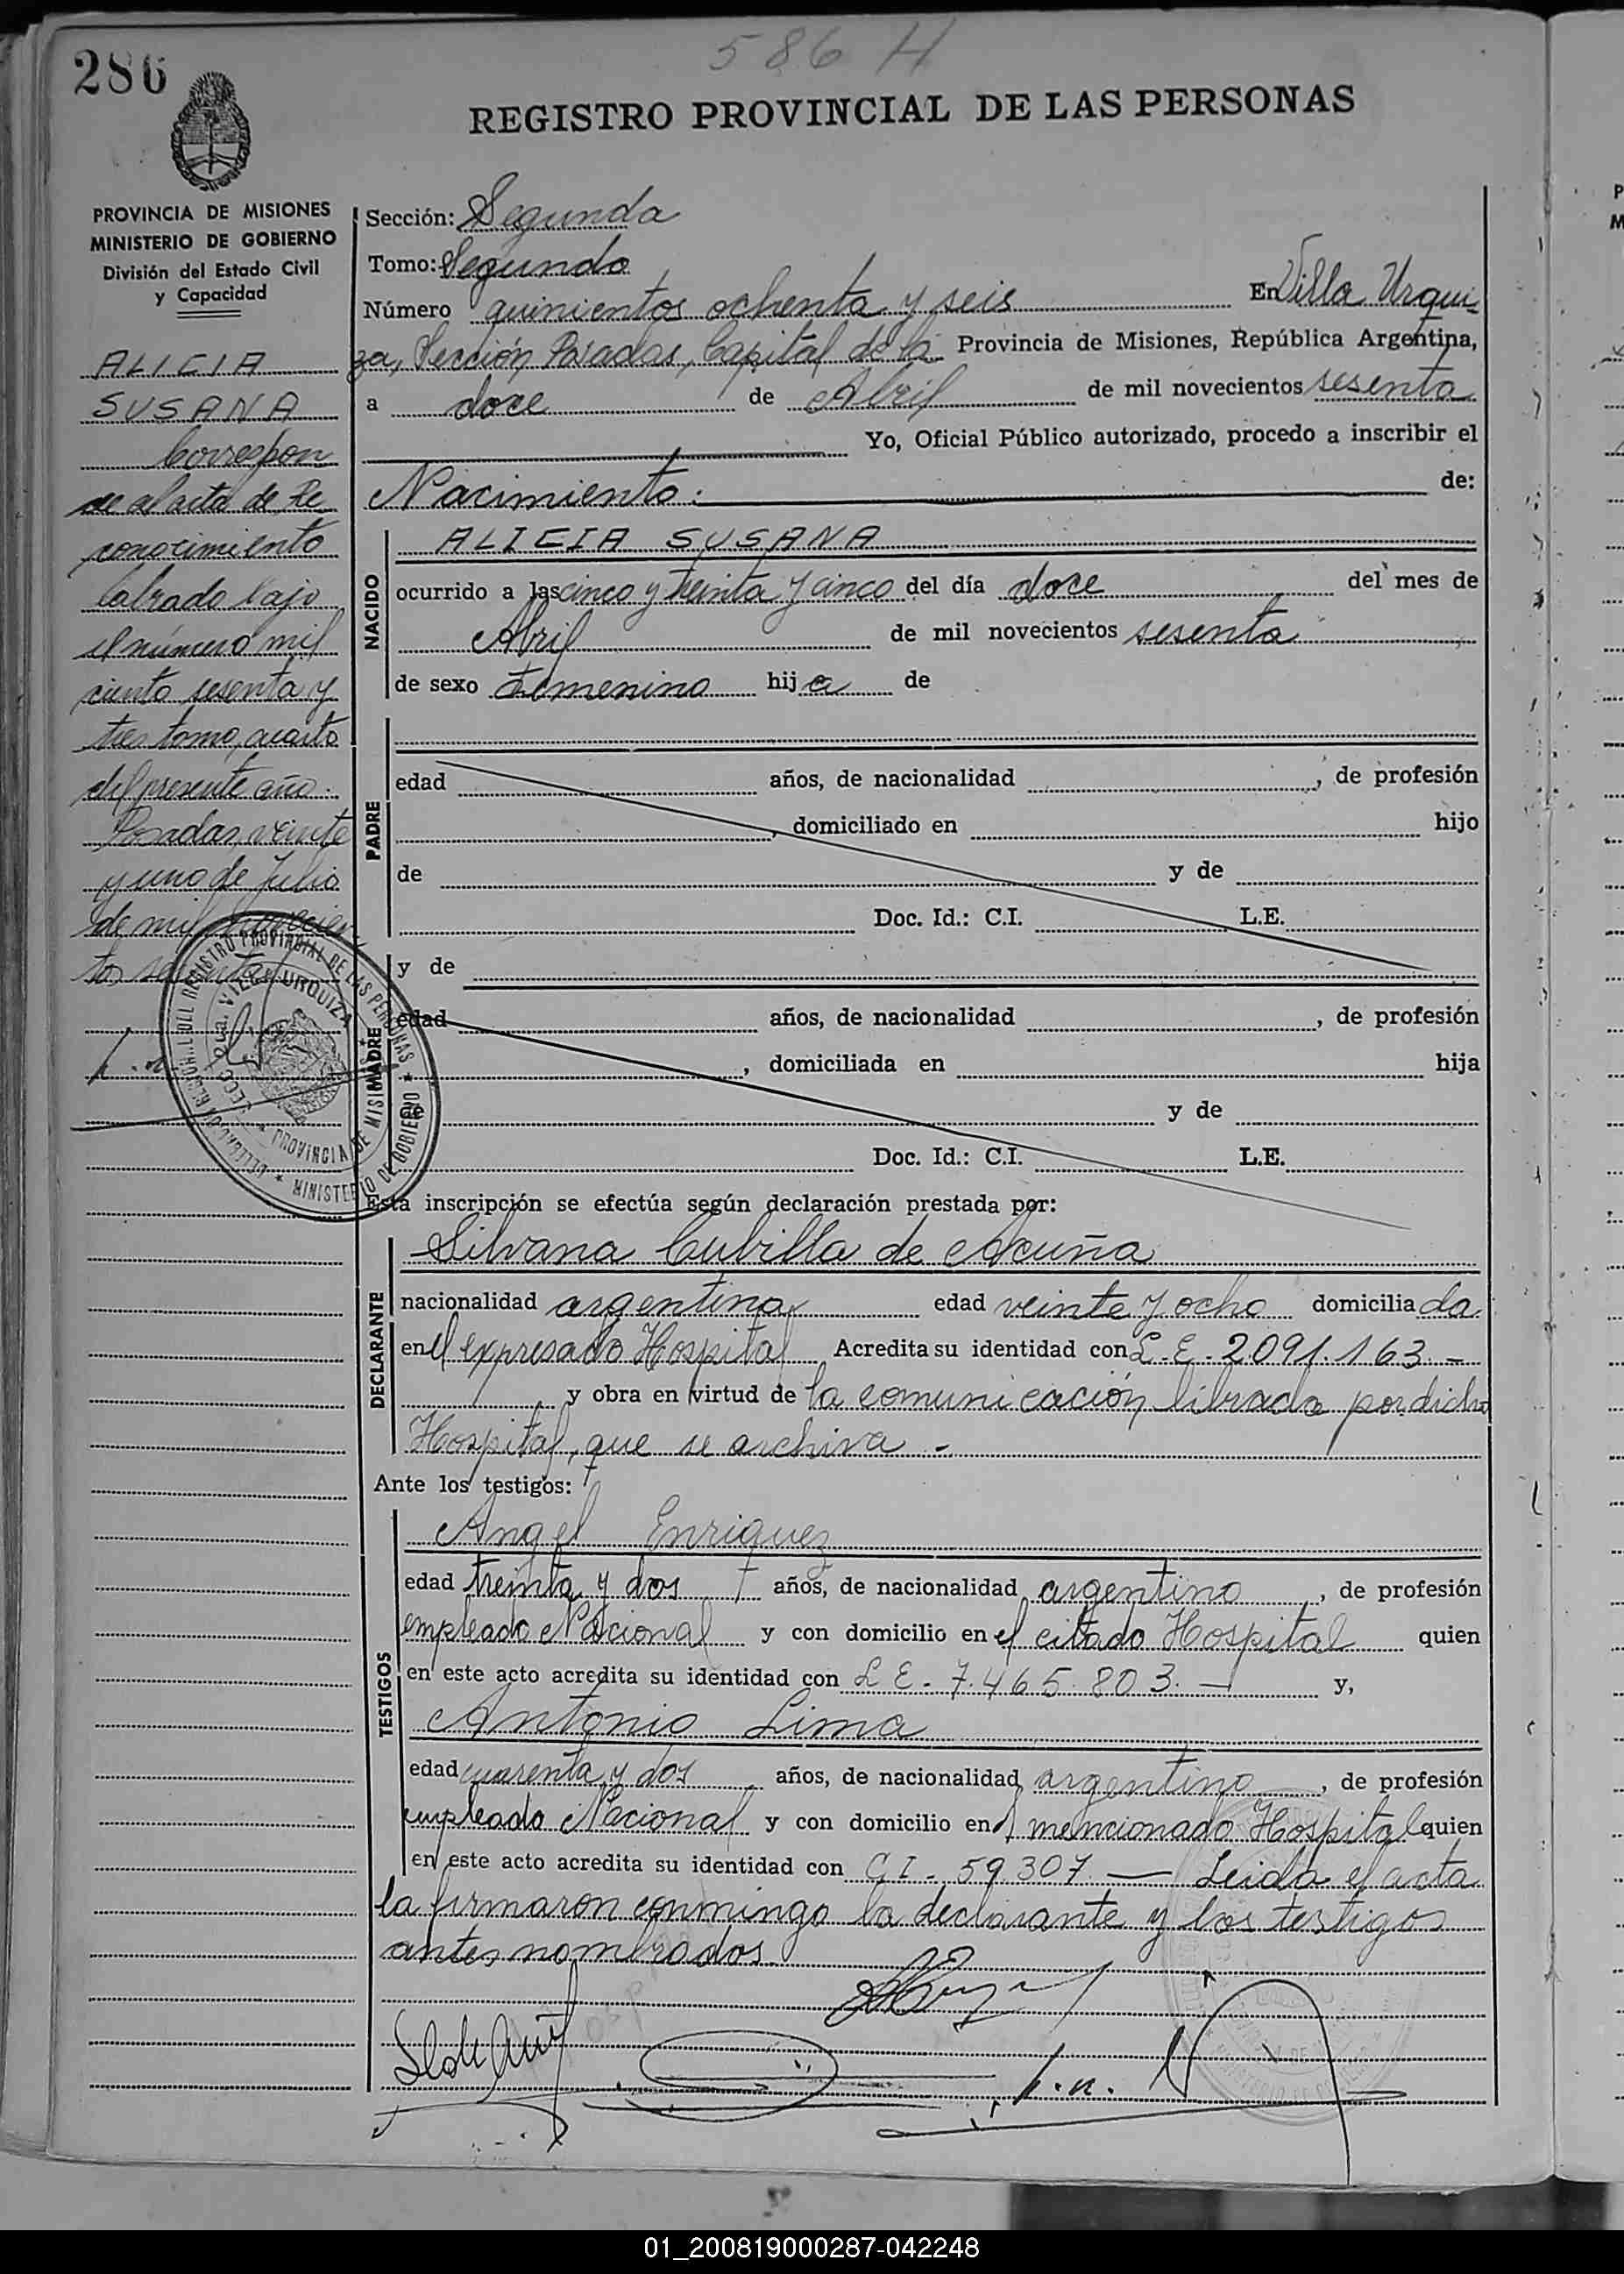 586 H
286
REGISTRO PROVINCIAL DE LAS PERSONAS
PROVINCIA DE MISIONES
MINISTERIO DE GOBIERNO
División del Estado Civil
y Capacidad
ALICIA
SUSANA
Correspon
de al acta de Re
conocimiento
labrado bajo
el número mil
ciento sesenta y
tres tomo cuarto
del presente año.
Posadas, veinte
y uno de Julio
de mil novecien
tos sesenta
Sección: Segunda
Tomo: Segundo
Número quinientos ochenta y seis En Villa Urqui-
za, Sección Posadas, Capital de la Provincia de Misiones, República Argentina,
a doce de Abril de mil novecientos sesenta
Yo, Oficial Público autorizado, procedo a inscribir el
Nacimiento: de:
NACIDO
ALICIA SUSANA
ocurrido a las cinco y treinta y cinco del día doce del mes de
Abril de mil novecientos sesenta
de sexo femenino hija de
PADRE
edad años, de nacionalidad , de profesión
, domiciliado en hijo
de y de
Doc. Id.: C.I. L.E.
y de
MADRE
edad años, de nacionalidad , de profesión
, domiciliada en hija
de y de
Doc. Id.: C.I. L.E.
DEL REGISTRO PROVINCIAL DE LAS PERSONAS
VILLA URQUIZA
PROVINCIA DE MISIONES
MINISTERIO DE GOBIERNO
Esta inscripción se efectúa según declaración prestada por:
DECLARANTE
Silvana Cubilla de Acuña
nacionalidad argentina edad veinte y ocho domiciliada
en el expresado Hospital Acredita su identidad con L.E. 2.091.163 -
y obra en virtud de la comunicación librada por dicho
Hospital, que se archiva -
Ante los testigos:
TESTIGOS
Angel Enriquez
edad treinta y dos años, de nacionalidad argentino , de profesión
empleado Nacional y con domicilio en el citado Hospital quien
en este acto acredita su identidad con L E - 7.465.803. — y,
Antonio Lima
edad cuarenta y dos años, de nacionalidad argentino , de profesión
empleado Nacional y con domicilio en el mencionado Hospital quien
en este acto acredita su identidad con C I - 59.307 — Leida el acta
la firmaron conmingo la declarante y los testigos
antes nombrados.
01_200819000287-042248